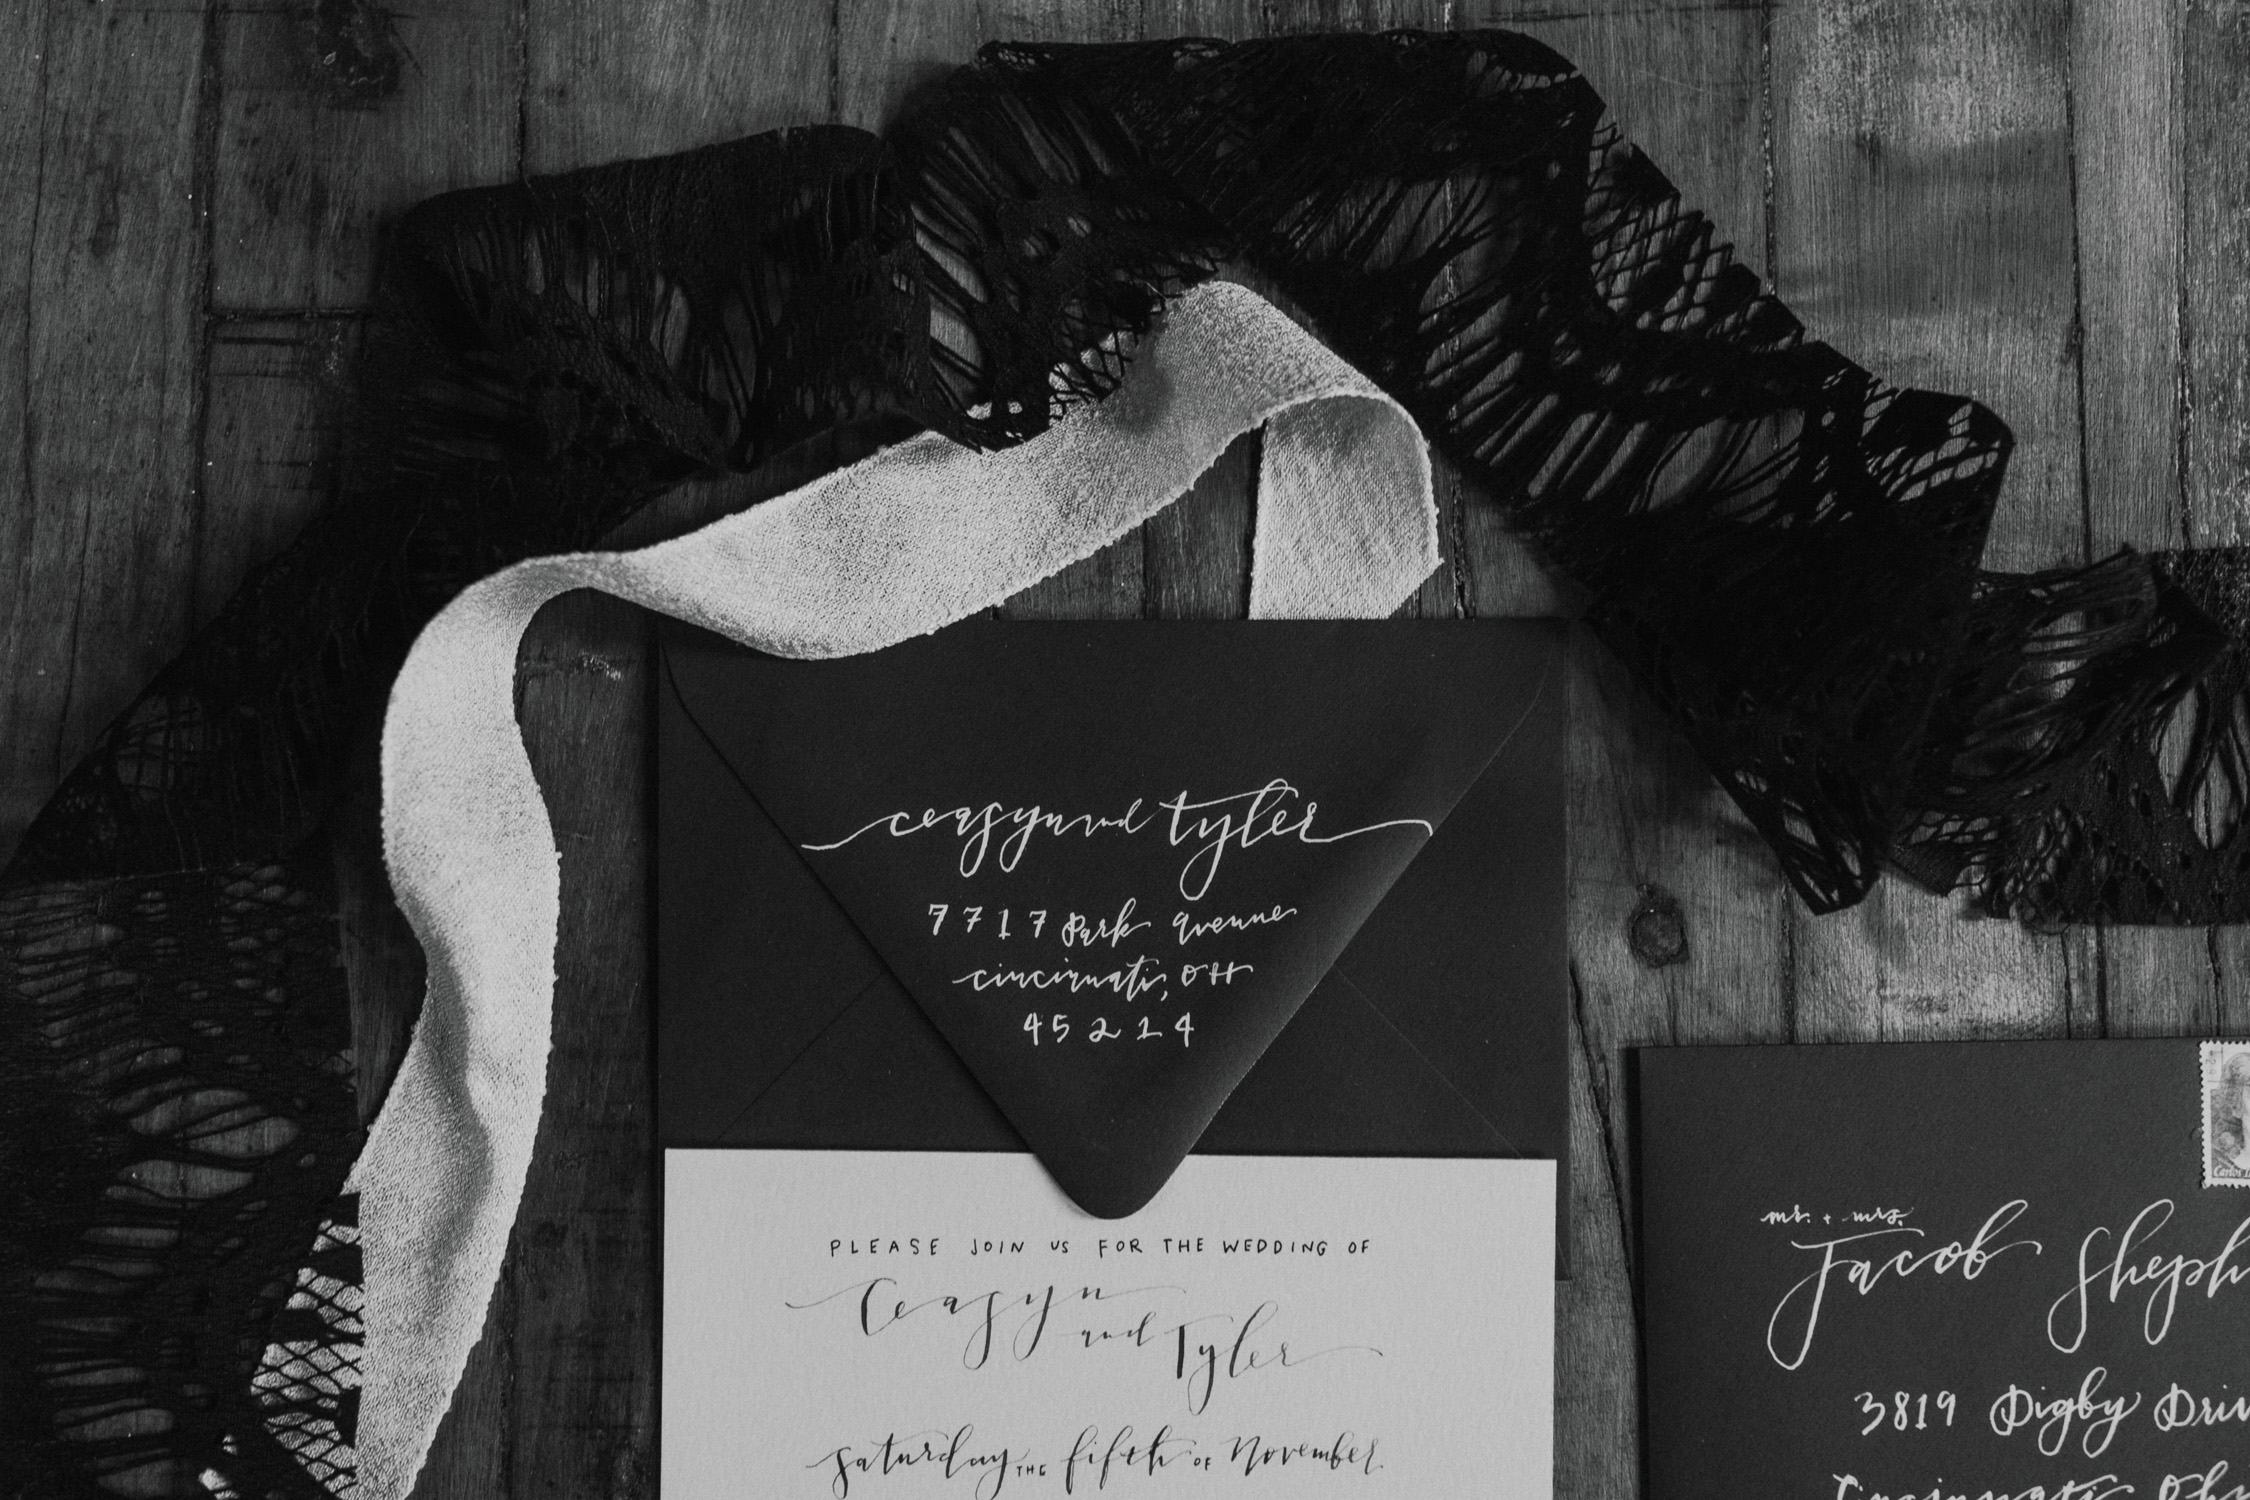 ceasyn and tyler
7717 Park avenue
cincinnati, OH
45214
PLEASE JOIN US FOR THE WEDDING OF
Ceasyn
and Tyler
saturday THE fifth OF November
mr. + mrs.
Jacob
3819 Digby